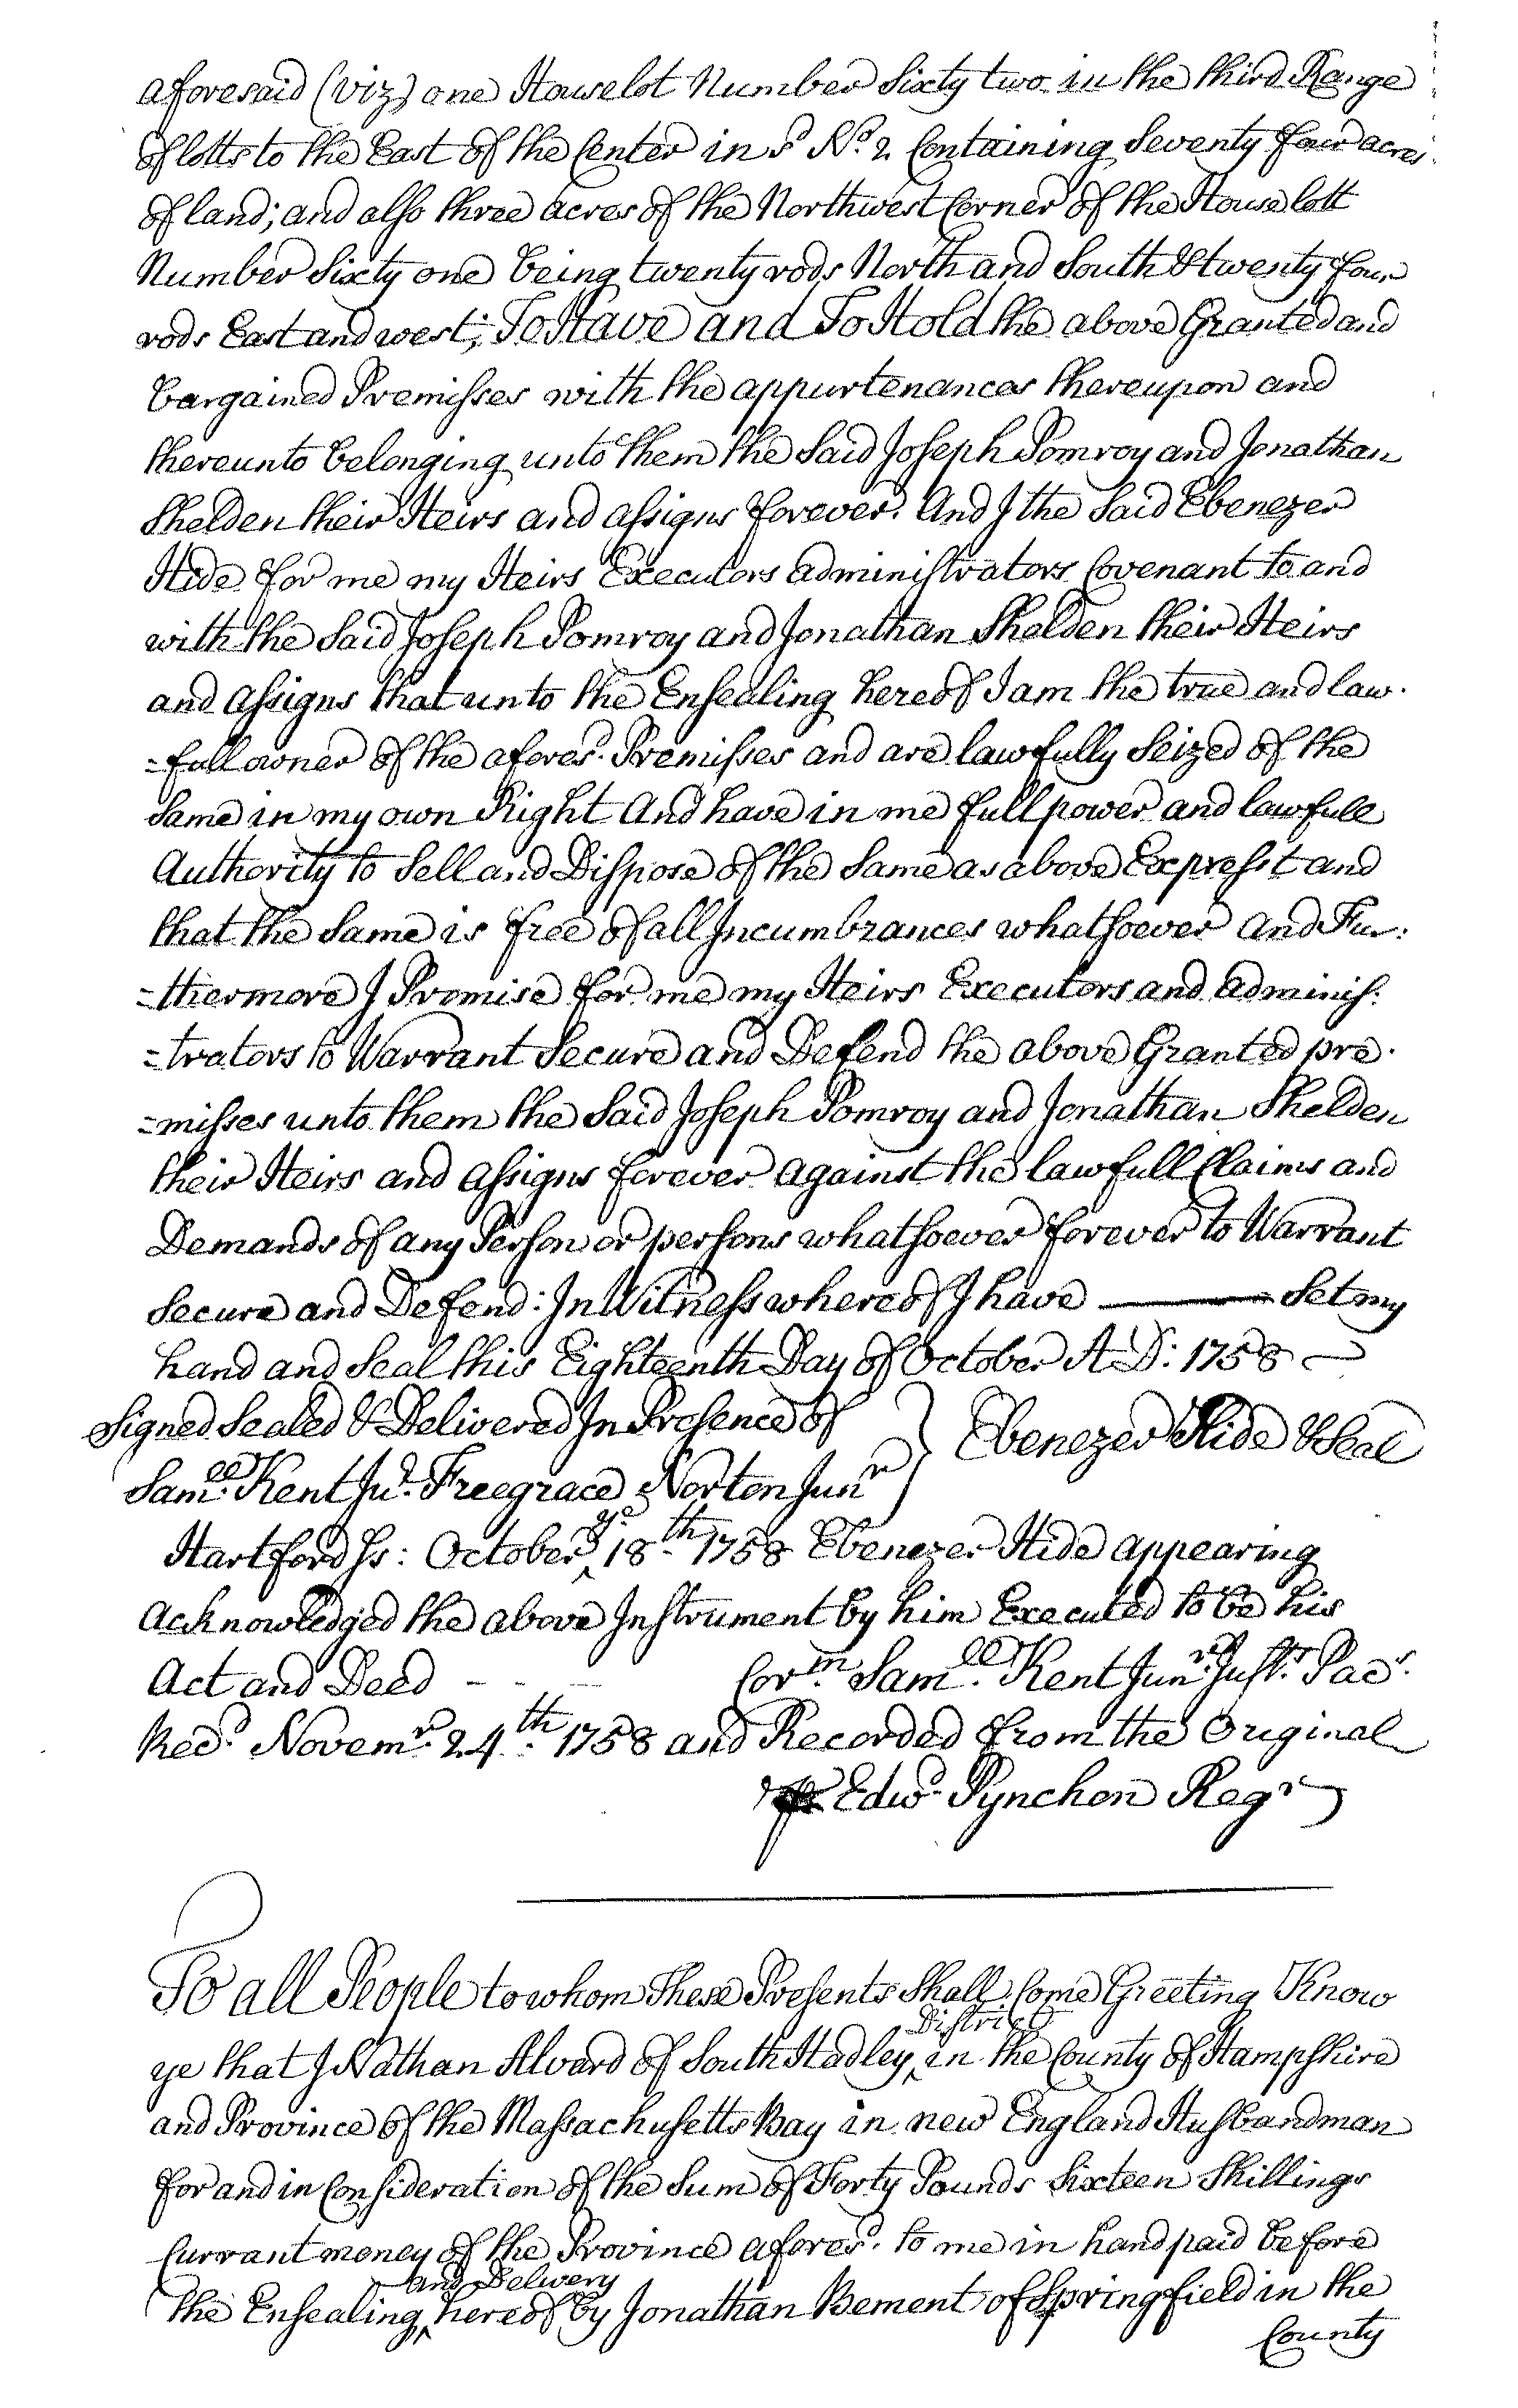 aforesaid (viz) one Houselot Number Sixty two in the third Range
of lotts to the East of the Center in sd No. 2 Containing Seventy four acres
of land; and also three acres of the Northwest Corner of the House lott
Number Sixty one being twenty rods North and South & twenty four
rods East and west; To Have and To Hold the above Granted and
bargained Premisses with the appurtenances thereupon and
thereunto belonging unto them the Said Joseph Pomroy and Jonathan
Shelden their Heirs and assigns forever. And I the Said Ebenezer
Hide for me my Heirs Executors administrators Covenant to and
with the Said Joseph Pomroy and Jonathan Shelden their Heirs
and assigns that unto the Ensealing hereof I am the true and law-
=full owner of the afores.d Premisses and are lawfully Seized of the
Same in my own Right And have in me full power and lawfull
Authority to Sell and Dispose of the Same as above Expresst and
that the Same is free of all Incumbrances whatsoever And Fur:
=thermore I Promise for me my Heirs Executors and adminis:
=trators to Warrant Secure and Defend the above Granted pre-
=misses unto them the Said Joseph Pomroy and Jonathan Shelden
their Heirs and assigns forever against the lawfull Claims and
Demands of any Person or persons whatsoever forever to Warrant
Secure and Defend: In Witness whereof I have ——— Set my
hand and Seal this Eighteenth Day of October A D: 1758
Signed Sealed & Delivered In Presence of } Ebenezer Hide & Seal
Sam.ll Kent Ju.r Freegrace Norton Junr
Hartford Ss: October ye 18.th 1758 Ebenezer Hide appearing
acknowledged the above Instrument by him Executed to be his
Act and Deed - - - Cor.m Sam.ll Kent Jun.r Just.s Pac.s
Rec.d Novem.r 24.th 1758 and Recorded from the Original
Edw.d Pynchon Regr
To all People to whom These Presents Shall Come Greeting Know
ye that I Nathan Alvord of South Hadley District in the County of Hampshire
and Province of the Massachusetts Bay in new England Husbandman
for and in Consideration of the Sum of Forty Pounds Sixteen Shillings
Currant money of the Province afores.d to me in hand paid before
the Ensealing and Delivery hereof by Jonathan Bement of Springfield in the
County